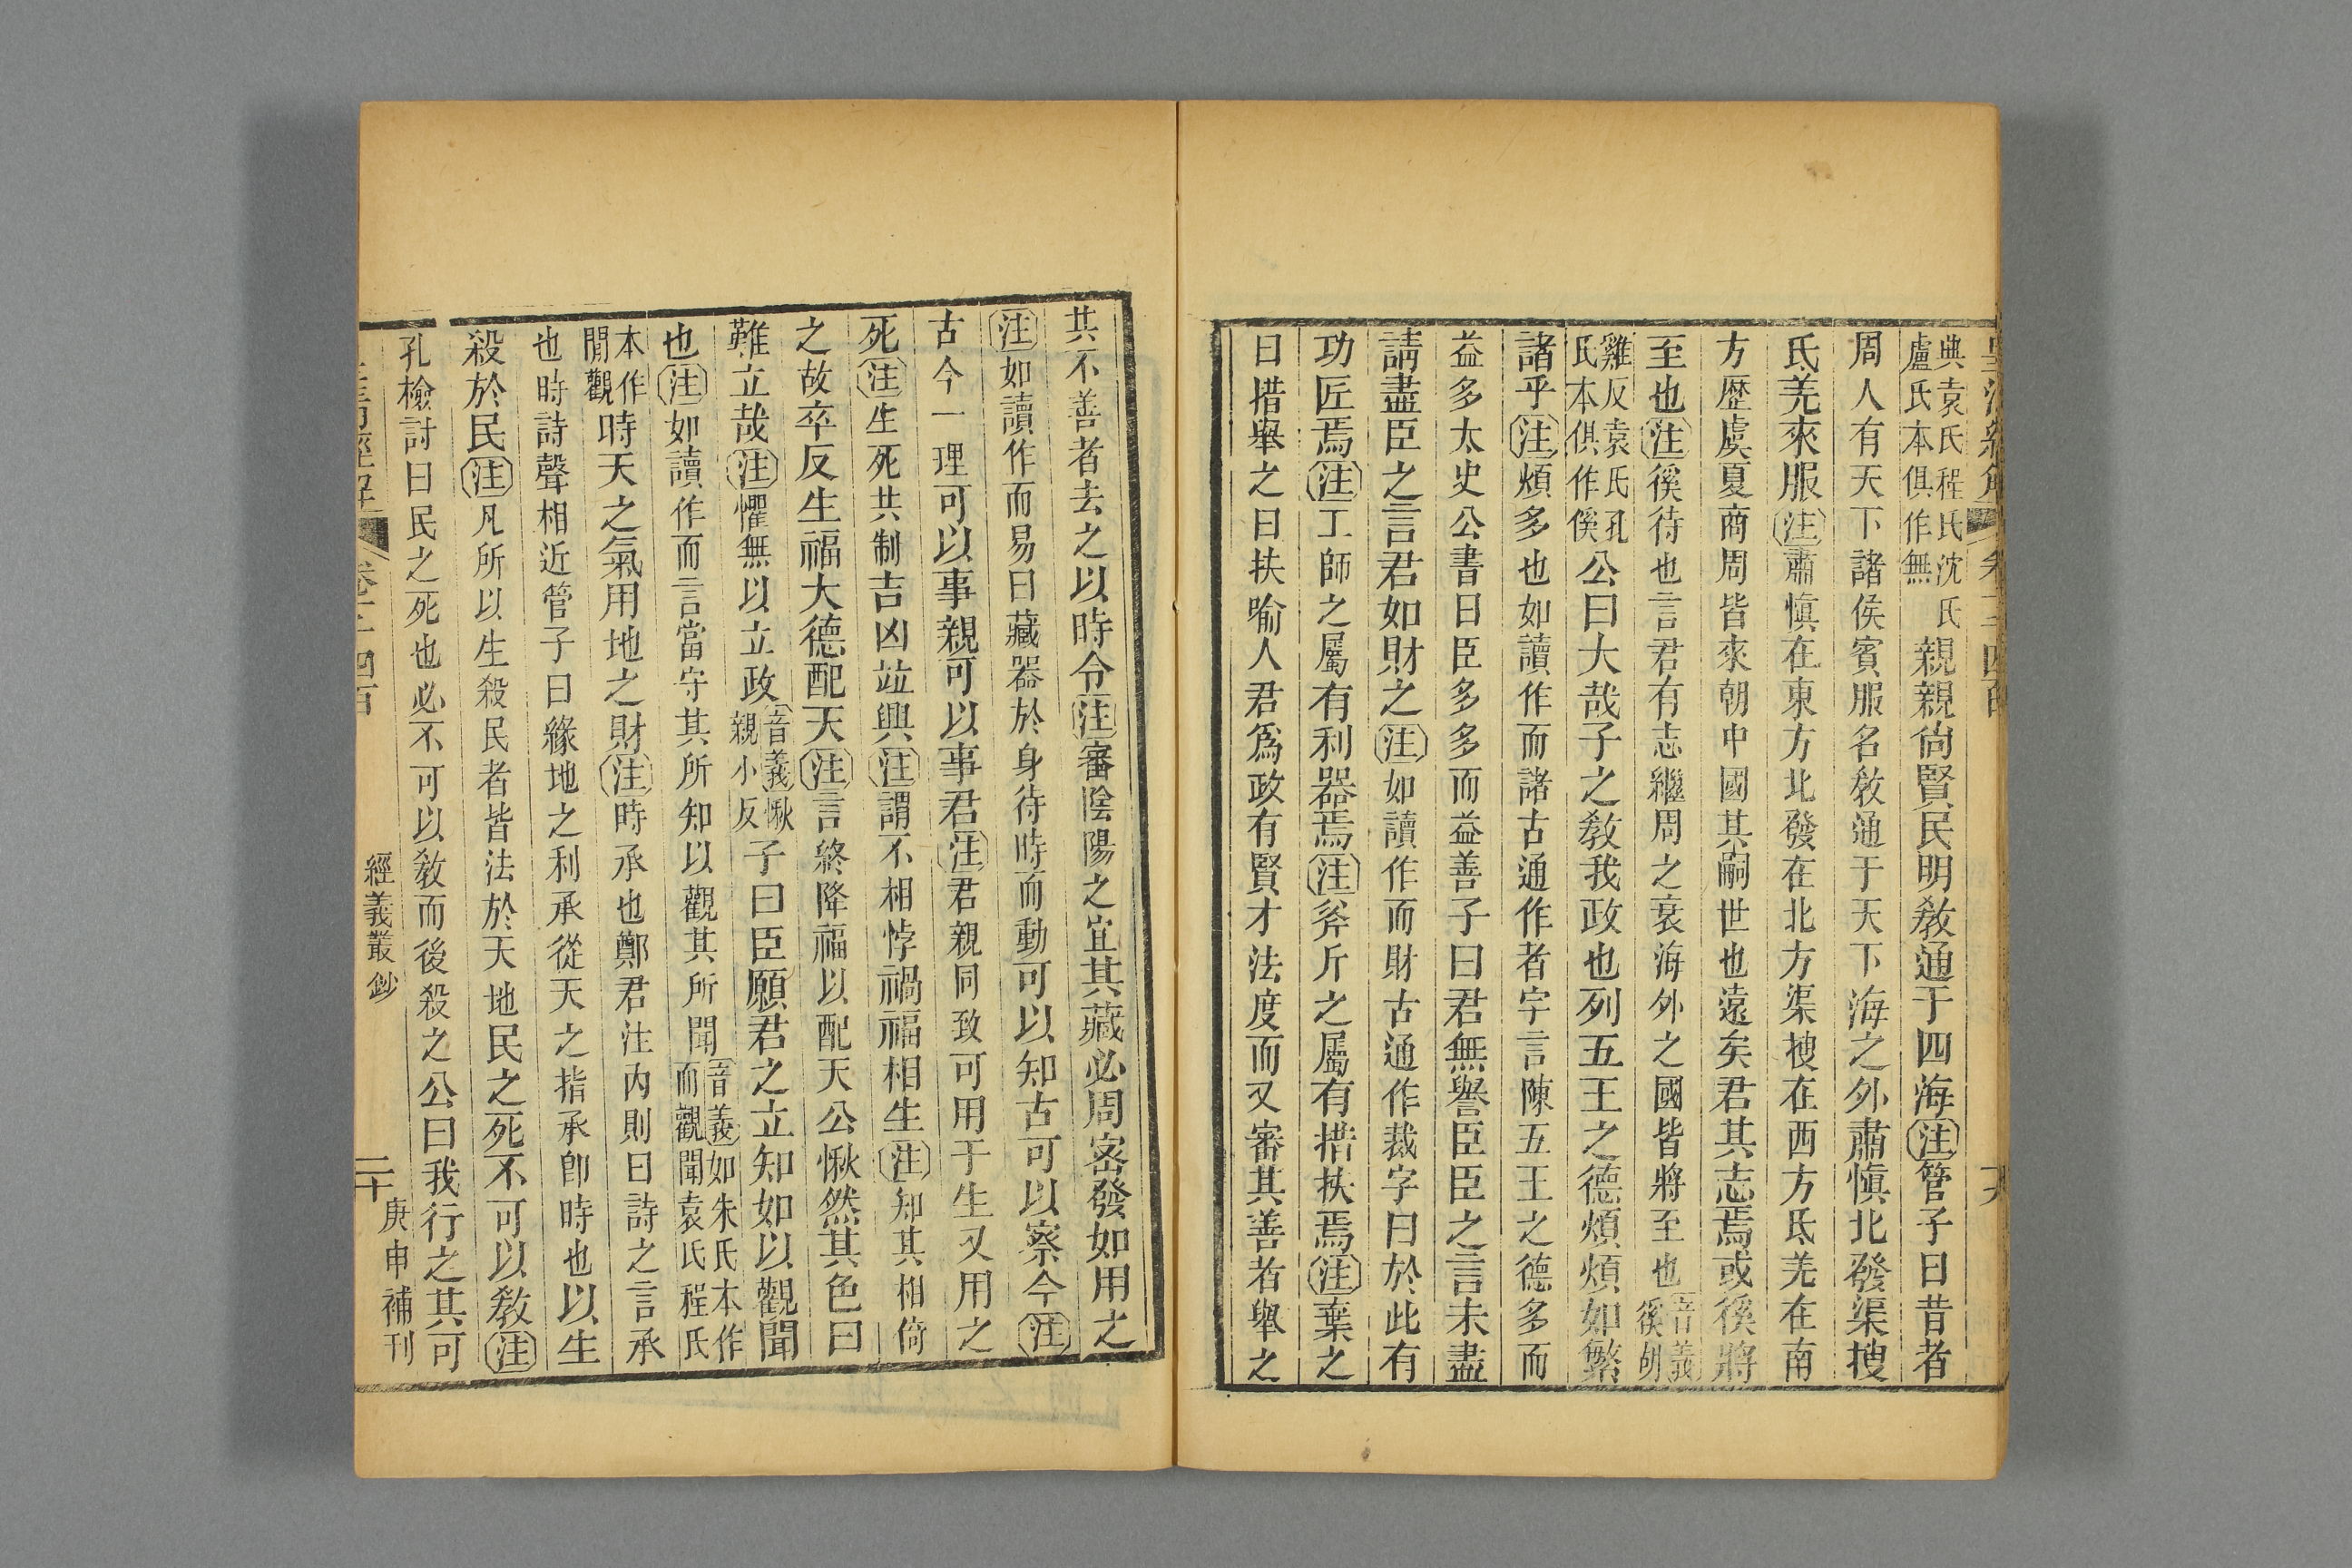 典袁氏程氏沈氏
盧氏本俱作無
親親尙賢民明敎通于四海注管子曰昔者
周人有天下諸侯賓服名敎通于天下海之外肅愼北發渠搜
氐羌來服注肅愼在東方北發在北方渠搜在西方氐羌在南
方歷虞夏商周皆來朝中國其嗣世也遠矣君其志焉或徯將
至也注徯待也言君有志繼周之衰海外之國皆將至也
音義徯胡
雞反袁氏孔
氏本俱作傒
公曰大哉子之敎我政也列五王之德煩煩如繁
諸乎注煩多也如讀作而諸古通作者字言陳五王之德多而
益多太史公書曰臣多多而益善子曰君無譽臣臣之言未盡
請盡臣之言君如財之注如讀作而財古通作裁字曰於此有
功匠焉注工師之屬有利器焉注斧斤之屬有措扶焉注葉之
曰措舉之曰扶喻人君爲政有賢才法度而又審其善者舉之
其不善者去之以時令注審陰陽之宜其藏必周密發如用之
注如讀作而易曰藏器於身待時而動可以知古可以察今注
古今一理可以事親可以事君注君親同致可用于生又用之
死注生死共制吉凶竝興注謂不相悖禍福相生注知其相倚
之故卒反生福大德配天注言終降福以配天公愀然其色曰
難立哉注懼無以立政
音義愀
親小反
子曰臣願君之立知如以觀聞
也注如讀作而言當守其所知以觀其所聞
音義如朱氏本作
而觀聞袁氏程氏
本作
閒觀
時天之氣用地之財注時承也鄭君注內則曰詩之言承
也時詩聲相近管子曰緣地之利承從天之指承卽時也以生
殺於民注凡所以生殺民者皆法於天地民之死不可以敎注
孔檢討曰民之死也必不可以敎而後殺之公曰我行之其可
經義叢鈔
二十
庚申補刊